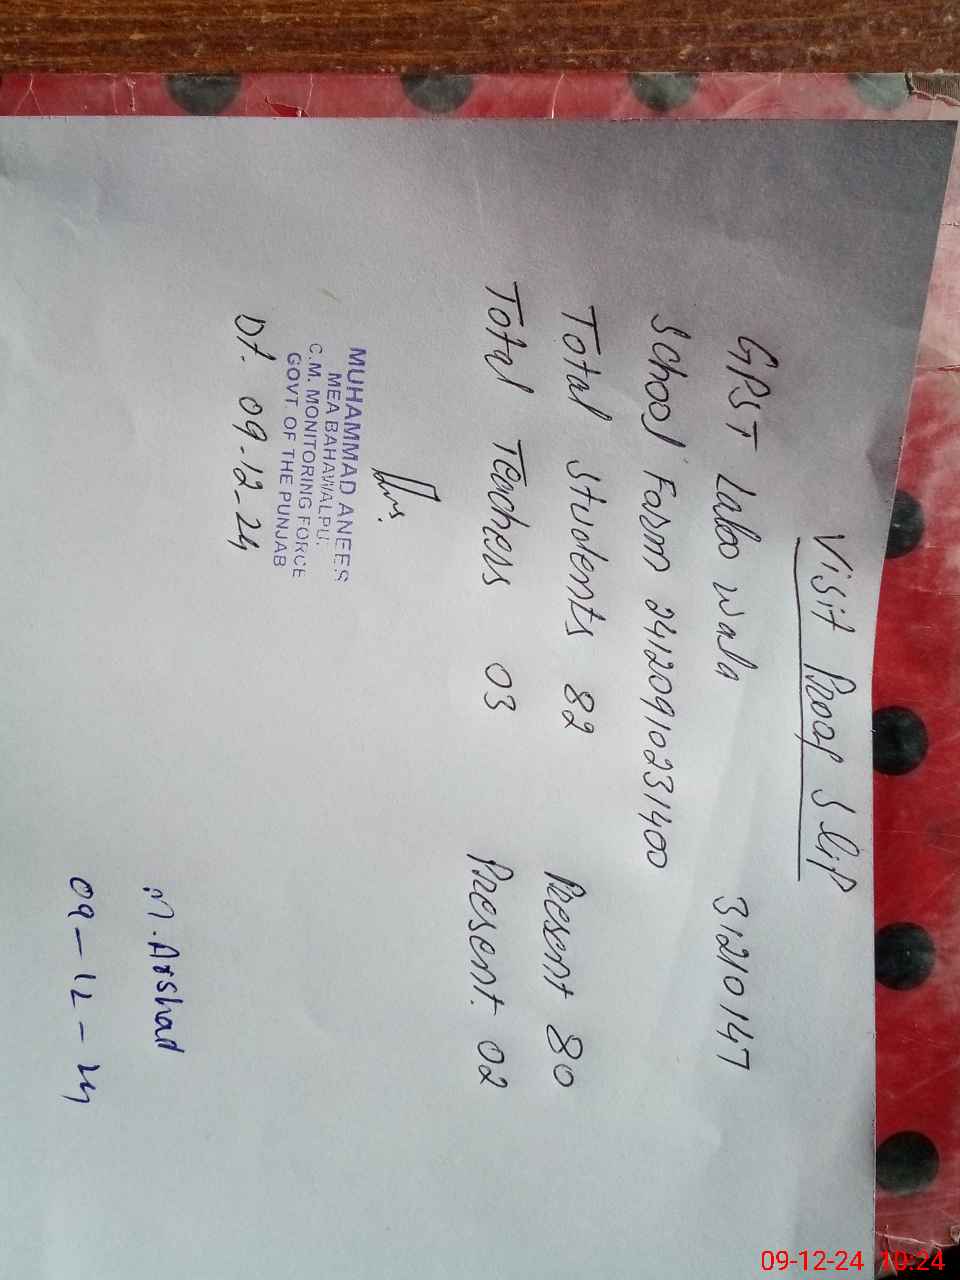 Visit Proof Slip
GPST Laboo wala 31210147
School Form 24120910231400
Total Students 82 Present 80
Total Teachers 03 Present. 02
MUHAMMAD ANEES
MEA BAHAWALPU.
C.M. MONITORING FORCE
GOVT. OF THE PUNJAB
Dt. 09-12-24
M. Arshad
09-12-24
09-12-24 10:24